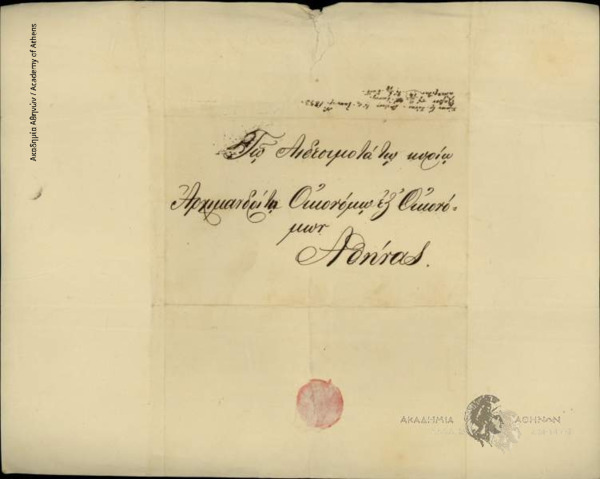 Ακαδημία Αθηνών / Academy of Athens
Τῷ Αἰδεσιμοτάτῳ κυρίῳ
Ἀρχιμανδρίτῃ Οἰκονόμῳ ἐξ Οἰκονό-
μων
Ἀθήνας.
ΑΚΑΔΗΜΙΑ ΑΘΗΝΩΝ